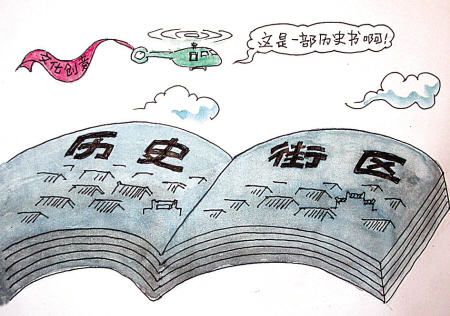 文化创意
这是一部历史书啊!
历史 街区